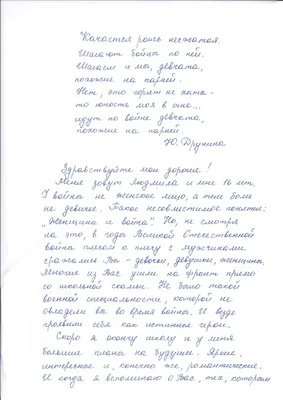 Качается рожь несжатая.
Шагают бойцы по ней.
Шагаем и мы, девчата,
похожие на парней.
Нет, это горят не хаты -
то юность моя в огне...
идут по войне девчата,
похожие на парней.
Ю. Друнина
Здравствуйте мои дорогие!
Меня зовут Людмила и мне 16 лет.
У войны не женское лицо, а тем боле
не девичье. Такое несовместимое понятие:
"Женщина и война". Но, не смотря
на это, в годы Великой Отечественной
войны плечом к плечу с мужчинами
сражались Вы - девочки, девушки, женщины.
Многие из Вас ушли на фронт прямо
со школьной скамьи. Не было такой
военной специальности, которой не
овладели вы во время войны. И везде
проявили себя как истинные герои.
Скоро я окончу школу и у меня
большие планы на будущее. Яркие,
интересные и, конечно же, романтические.
И когда я вспоминаю о Вас, тех, которым